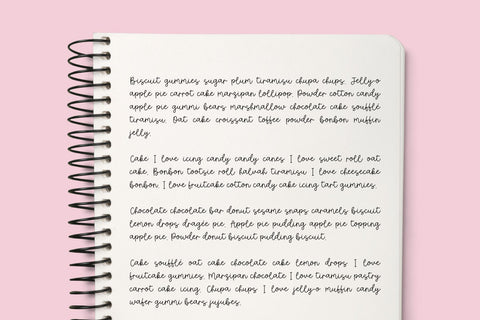 Biscuit gummies sugar plum tiramisu chupa chups. Jelly-o
apple pie carrot cake marzipan lollipop. Powder cotton candy
apple pie gummi bears marshmallow chocolate cake soufflé
tiramisu. Oat cake croissant toffee powder bonbon muffin
jelly.
Cake I love icing candy candy canes I love sweet roll oat
cake. Bonbon tootsie roll halvah tiramisu I love cheesecake
bonbon. I love fruitcake cotton candy cake icing tart gummies.
Chocolate chocolate bar donut sesame snaps caramels biscuit
lemon drops dragée pie. Apple pie pudding apple pie topping
apple pie. Powder donut biscuit pudding biscuit.
Cake soufflé oat cake chocolate cake lemon drops I love
fruitcake gummies. Marzipan chocolate I love tiramisu pastry
carrot cake icing. Chupa chups I love jelly-o muffin candy
wafer gummi bears jujubes.